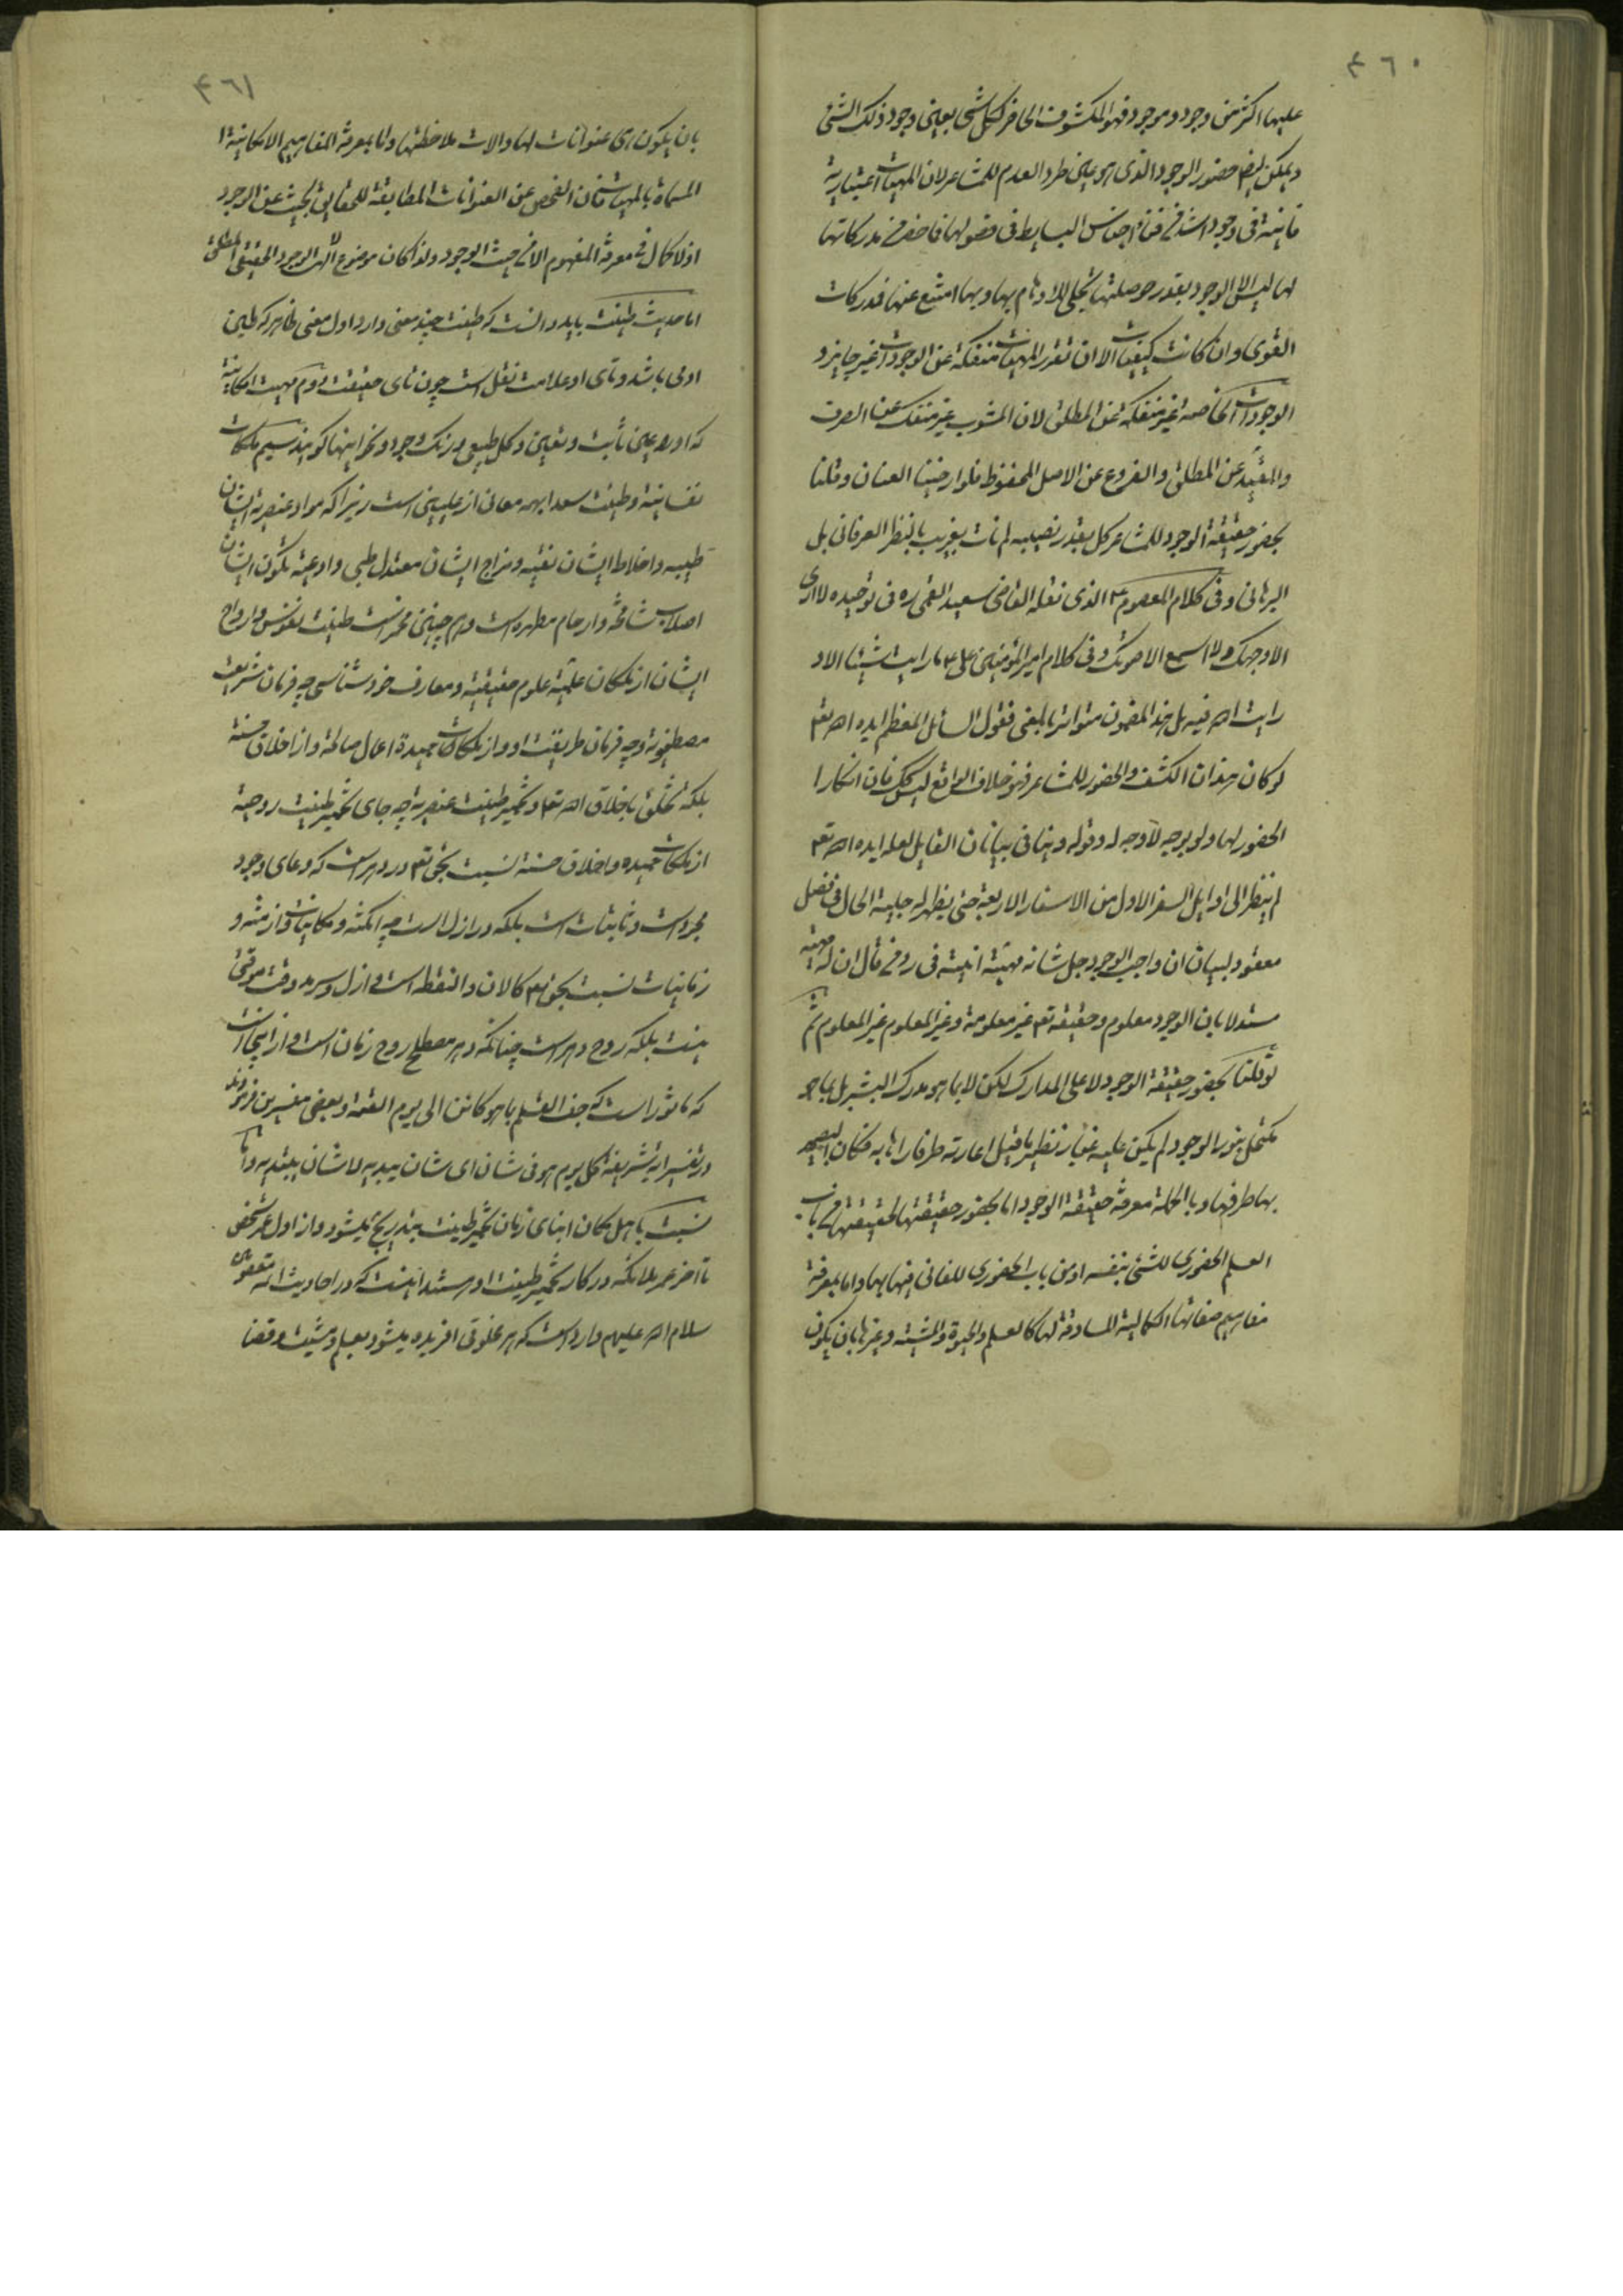 ٤٦٠
عليها اكثر من وجود وموجود فهو المكشوف الحاضر لكل شئ بعين وجود ذلك الشئ
ويمكن ايضا حضور الوجود الذى هو عين طرد العدم للمشاعر لان المهيات اعتبارية
فانية فى وجود اشد من فناء اجناس البسايط فى فصولها فاحضر فى مدركاتها
لها ليس الا الوجود بقدر حوصلتها تجلى للاوهام بها وبها امتنع عنها فمدركات
القوى وان كانت كيفيات الا ان تقرر المهيات منفكة عن الوجودات غير جايز و
الوجودات الخاصة غير منفكة عن المطلق لان المشوب غير منفك عن الصرف
والمقيد عن المطلق والفروع عن الاصل المحفوظ فلو ارخينا العنان وقلنا
بحضور حقيقة الوجود للمشاعر كل بقدر نصيبه لم نات بغريب بالنظر العرفانى بل
البرهانى وفى كلام المعصوم ع الذى نقله القاضى سعيد القمى ره فى توحيده لا ارى
الا وجهك ولا اسمع الا صوتك وفى كلام امير المؤمنين على ع ما رايت شيئا الا و
رايت الله فيه بل هذا المضمون متواتر بالمعنى فقول السائل المعظم ايده الله تعم
لو كان هذان الكشف والحضور للمشاعر فهو خلاف الواقع ليس كك فان انكار
الحضور لها ولو بوجه لا وجه له وقوله وينافى بيانات القايل لعله ايده الله تعم
لم ينظر الى اوايل السفر الاول من الاسفار الاربعة حتى يظهر له جلية الحال فى فصل
معقود لبيان ان واجب الوجود جل شانه مهيته انيته فى رد من قال ان له مهية
مستدلا بان الوجود معلوم وحقيقته تعم غير معلومة وغير المعلوم غير المعلوم ثم
لو قلنا بحضور حقيقة الوجود لا على المدارك لكن لا بما هو مدرك البشر بل بما هو
مكتحل بنور الوجود لم يكن عليه غبار نظير ما قيل اعارته طرفا راها به فكان البصير
بها طرفها وبالجملة معرفة حقيقة الوجود اما بحضور حقيقتها لحقيقتها من باب
العلم الحضورى للشئ بنفسه او من باب الحضورى للفانى فيها بها واما بمعرفة
مفاهيم صفاتها الكمالية المساوقة لها كالعلم والحيوة والمشية وغيرها بان يكون
٤٦١
بان يكون هى عنوانات لها والات ملاحظتها واما بمعرفة المفاهيم الامكانية ا
المسماة بالمهيات فان الفحص عن العنوانات المطابقة للحقايق بحث عن الوجود
اذ لا كمال فى معرفة المفهوم الا من حيث الوجود ولذا كان موضوع الالهى الوجود الحقيقى المطلق
اما حديث طينت بايد دانست كه طينت چند معنى دارد اول معنى ظاهر كه طين
ادمى باشد وتاى او علامت نقل است چون تاى حقيقت دوم مهيت امكانية
كه او را عين ثابت وتعين وكل طبيعى ورنك وجود ونحو اينها كويند سيم ملكات
نفسانية وطينت سعدا بهمه معانى از عليين است زيرا كه مواد عنصرية ايشان
طيبه واخلاط ايشان نقيه ومزاج ايشان معتدل طبى واوعيه تكون ايشان
اصلاب شامخه وارحام مطهره است وهم چنين مخمر است طينت نفوس وارواح
ايشان از ملكان علميه علوم حقيقيه ومعارف خود شناسى چه فرمان شريعت
مصطفويه وچه فرمان طريقت او واز ملكات حميده اعمال صالحه واز اخلاق حسنه
بلكه تخلق باخلاق الله تعم وتخمير طينت عنصريه چه جاى تخمير طينت روحية
از ملكات حميده واخلاق حسنه نسبت بحق تعم در دهر است كه وعاى وجود
مجردات وثابتات است بلكه در ازل است چه امكنه ومكانيات وازمنه و
زمانيات نسبت بحق تعم كالان والنقطه است وازل وسرمد وقت موقتى
نيست بلكه روح دهر است چنانكه دهر مصطلح روح زمان است واز اينجا است
كه ماثور است كه جف القلم بما هو كائن الى يوم القيمة وبعضى مفسرين فرمودند
در تفسير ايه شريفه كل يوم هو فى شان اى شان يبديه لا شان يبتديه واما
نسبت باهل مكان ابناى زمان تخمير طينت بتدريج ميشود واز اول عمر شخص
تا اخر عمر ملائكه در كار تخمير طينت او هستند اينست كه در احاديث ائمه معصومين
سلام الله عليهم وارد است كه هر مخلوقى افريده ميشود بعلم ومشيت وقضا